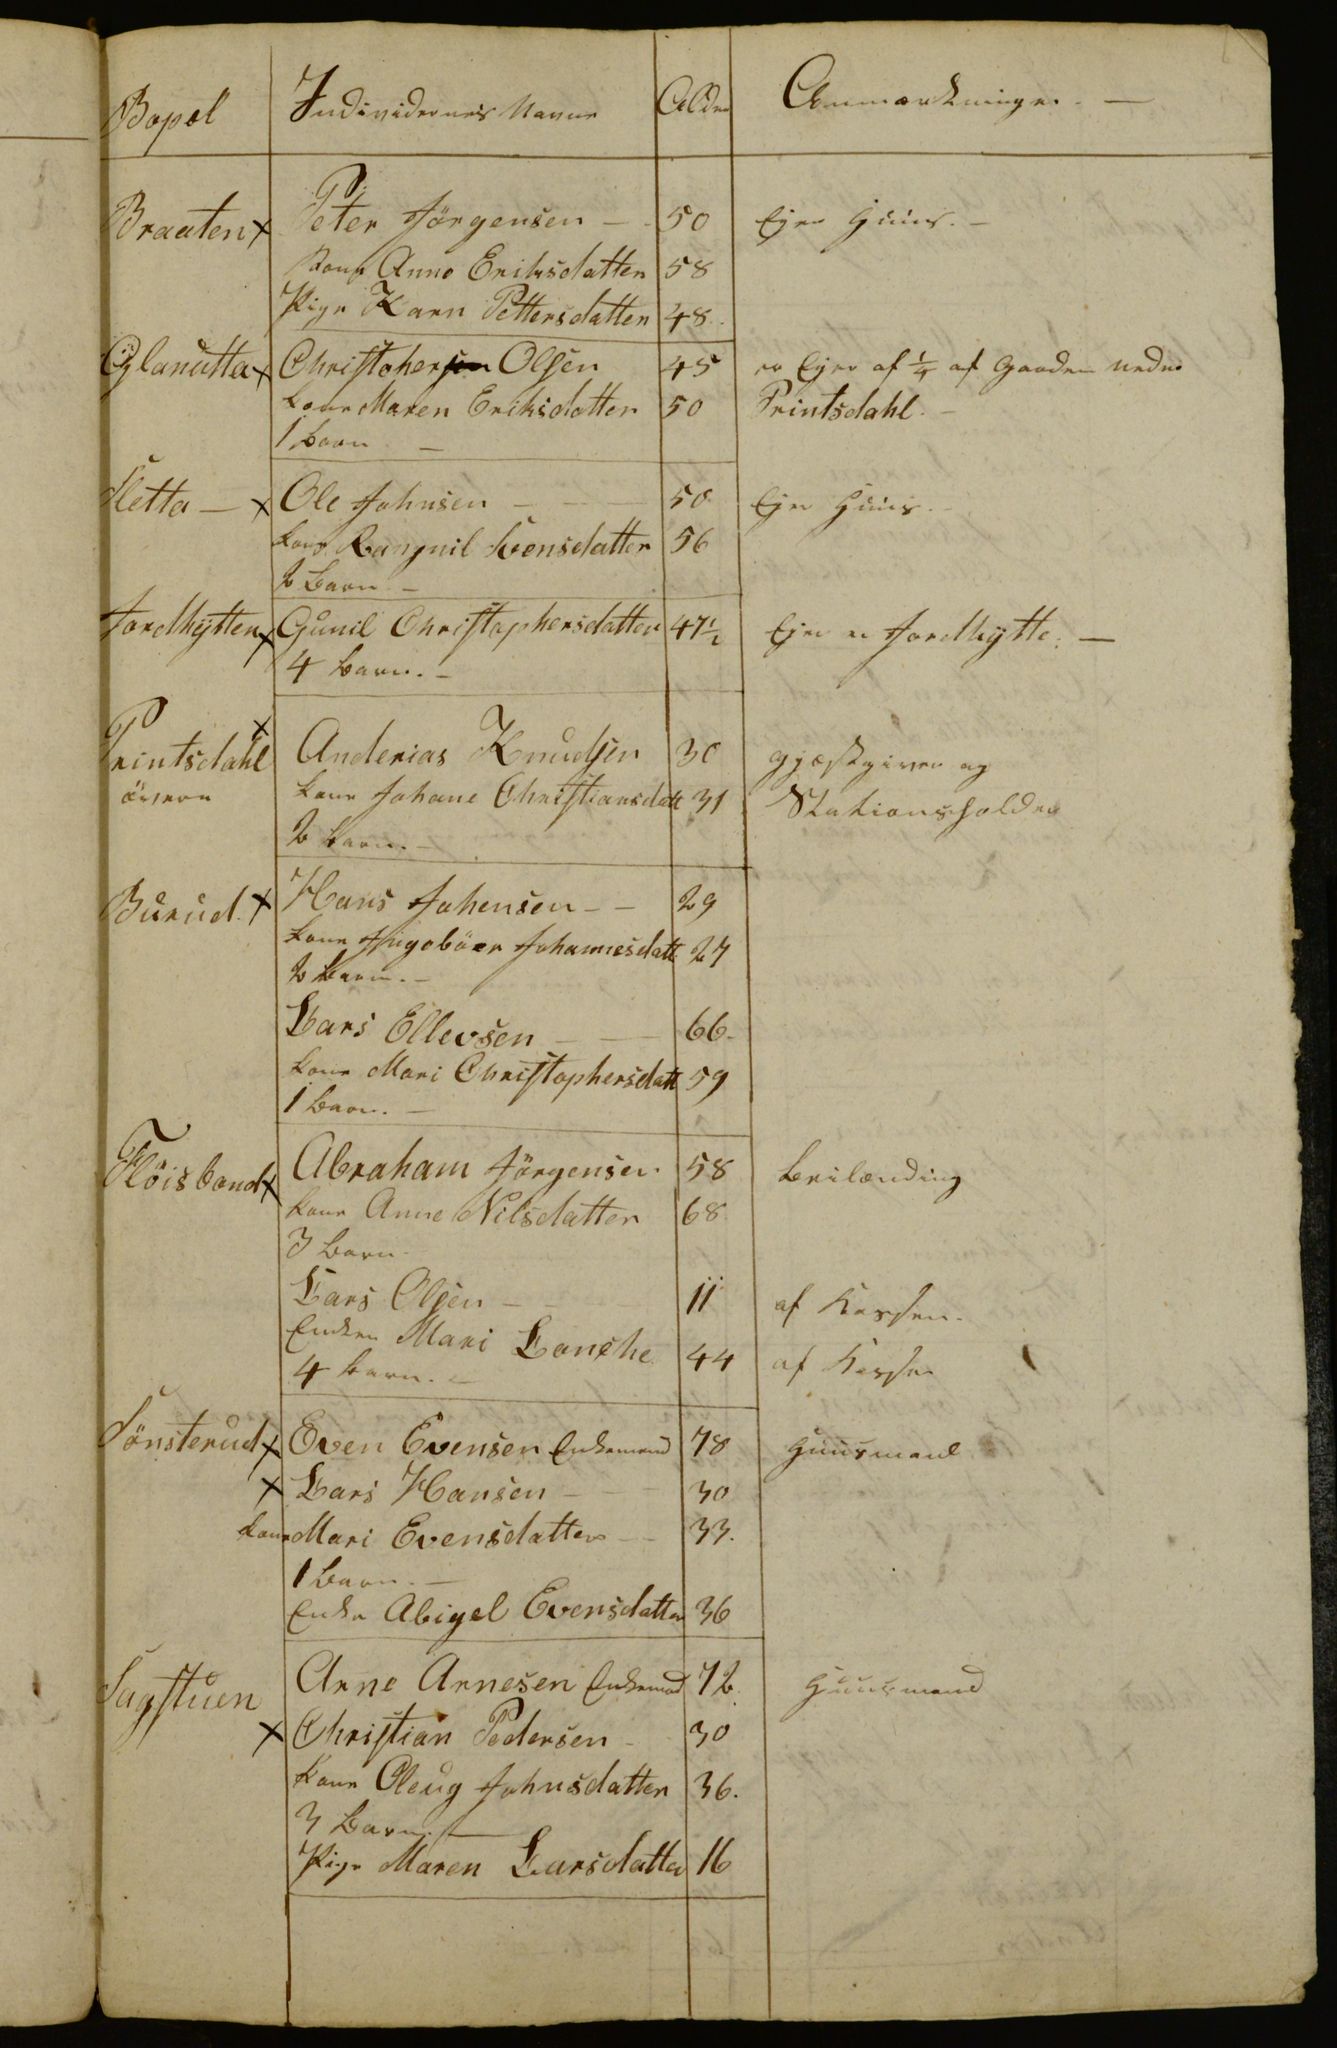 Bopæl Individernes Navne Alder Anmærkninger. —
Braaten x Peter Jörgensen — 50 Ejer Huus. —
Kone Anne Eriksdatter 58
Pige Karn Pettersdatter 48.
Glanutta x Christohersen Olsen 45 er Ejer af 1/4 af Gaarden nedre
Kone Maren Eriksdatter 50 Printsdahl. —
1 Barn —
Sletta — x Ole Johnsen — — 50 Ejer Huus. —
Kone Rangnil Svensdatter 56
2 Barn —
Jordhytten x Gunil Christophersdatter 47 1/2 Ejer en Jordhytte. —
4 Barn. —
Printsdahl x Anderias Knudsen 30 gjæstgiver og
övere Kone Johane Christiansdatt 31 Stationsholder
2 Barn. —
Burud. x Hans Johensen — — 29
Kone Ingebör Johannesdatt 27
2 Barn. —
Lars Ellevsen — — 66.
Kone Mari Christophersdatt 59
1 Barn. —
Flöisbond x Abraham Jörgensen 58 Beilænding
Kone Anne Nilsdatter 68
3 Barn
Lars Olsen — — 11 af Kassen.
Enken Mari Lonche 44 af Kassen
4 Barn. —
Sönsterud x Even Evensen Enkemand 78 Huusmand
x Lars Hansen — — 30
Kone Mari Evensdatter — 33.
1 Barn. —
Enke Abigel Evensdatter 36
Sagstuen Arne Arnesen Enkemad 72. Huusmand
x Christian Pedersen — 30
Kone Oleug Johnsdatter 36.
3 Barn. —
Pige Maren Larsdatter 16